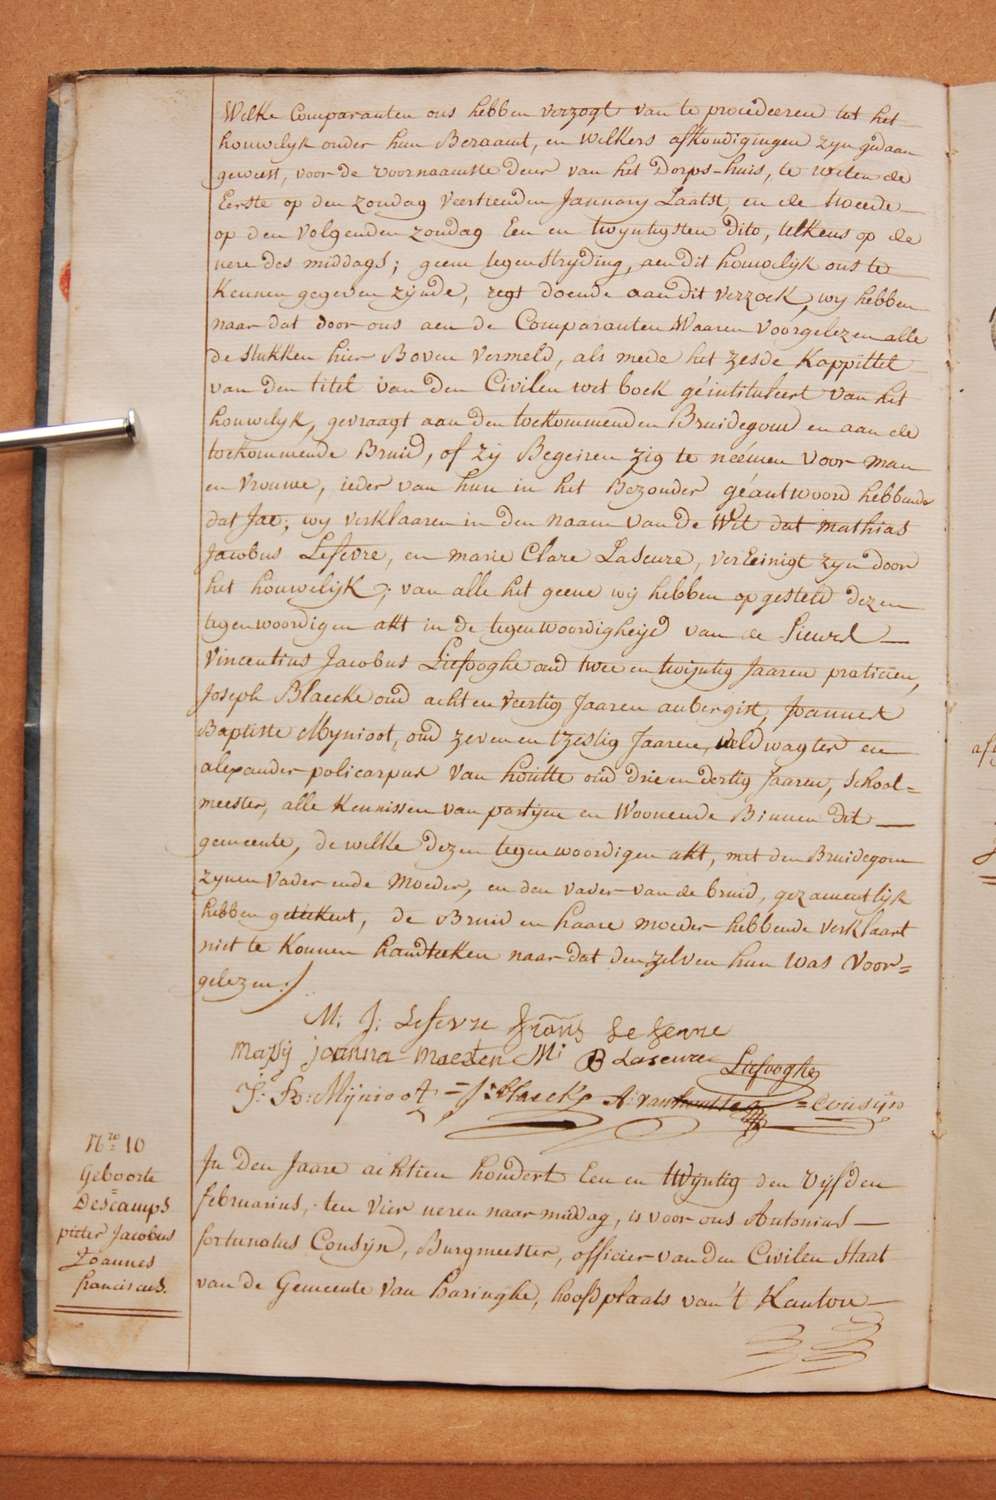 Welke Comparanten ons hebben verzogt van te procedeeren tot het
houwelijk onder hun Beraamt, en welkers afkondigingen zyn gedaan
geweest, voor de voornaamste deur van het Dorps-huis, te weten de
Eerste op den zondag Veertienden January Laatst, en de tweede
op den volgenden zondag Een en twyntigsten dito, telkens op de
uere des middags; geene tegenstryding, aen dit houwelijk ons te
Kennen gegeven zijnde, regt doende aan dit verzoek, wy hebben
naar dat door ons aen de Comparanten Waaren voorgelezen alle
de stukken hier Boven vermeld, als mede het zesde Kappittel
van den titel van den Civilen wet boek géintituleert van het
houwelyk, gevraagt aan den toekommenden Bruidegom en aan de
toekommende Bruid, of zij Begeiren zig te néemen voor man
en Vrouwe, ieder van hun in het Bezonder géantwoord hebbende
dat Jae; wy verklaaren in den naam van de Wet dat mathias
Jacobus Lefevre, en marie Clare Laseure, vereinigt zyn door
het houwelijk; van alle het geene wij hebben opgesteld dezen
tegenwoordigen akt in de tegenwoordigheijd van de Sieurs
Vincentius Jacobus Liefooghe oud twee en twijntig Jaaren praticien,
Joseph Blaecke oud acht en veertig Jaaren aubergist, Joannes
Baptiste Mynioot, oud zeven en tzestig Jaaren, veldwagter en
alexander policarpus van houtte oud drie en dertig Jaaren, school=
meester, alle Kennissen van partijen en Woonende Binnen dit
gemeente, de welke dezen tegenwoordigen akt, met den Bruidegom
zynen vader ende Moeder, en den vader van de bruid, gezamentlyk
hebben geteekent, de Bruid en haare moeder hebbende verklaart
niet te Konnen handteeken naar dat den zelven hun was voor=
gelezen./
M: J: Lefevre frans Le fevre
marij joanna maerten Mi B Laseure Liefooghe
J: Bo: Mijnioot = J: Blaecke A: vanhoutte = Cousijn
Nro 10
Geboorte
Descamps
pieter Jacobus
Joannes
franciscus.
In Den Jaare achtien hondert Een en twyntig den vyfden
februarius, ten vier ueren naar middag, is voor ons Antonius
fortunatus Cousijn, Burgmeester, officier van den Civilen staat
van de Gemeente van haringhe, hoofdplaats van 't Kanton